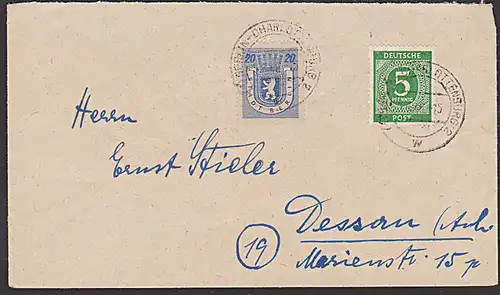 BERLIN-CHARLOTTENBURG 2
20 20
STADT BERLIN
DEUTSCHE
5
PFENNIG
POST
CHARLOTTENBURG 2
Herrn
Ernst Stieler
(19) Dessau (Anh.
Marienstr. 15 p